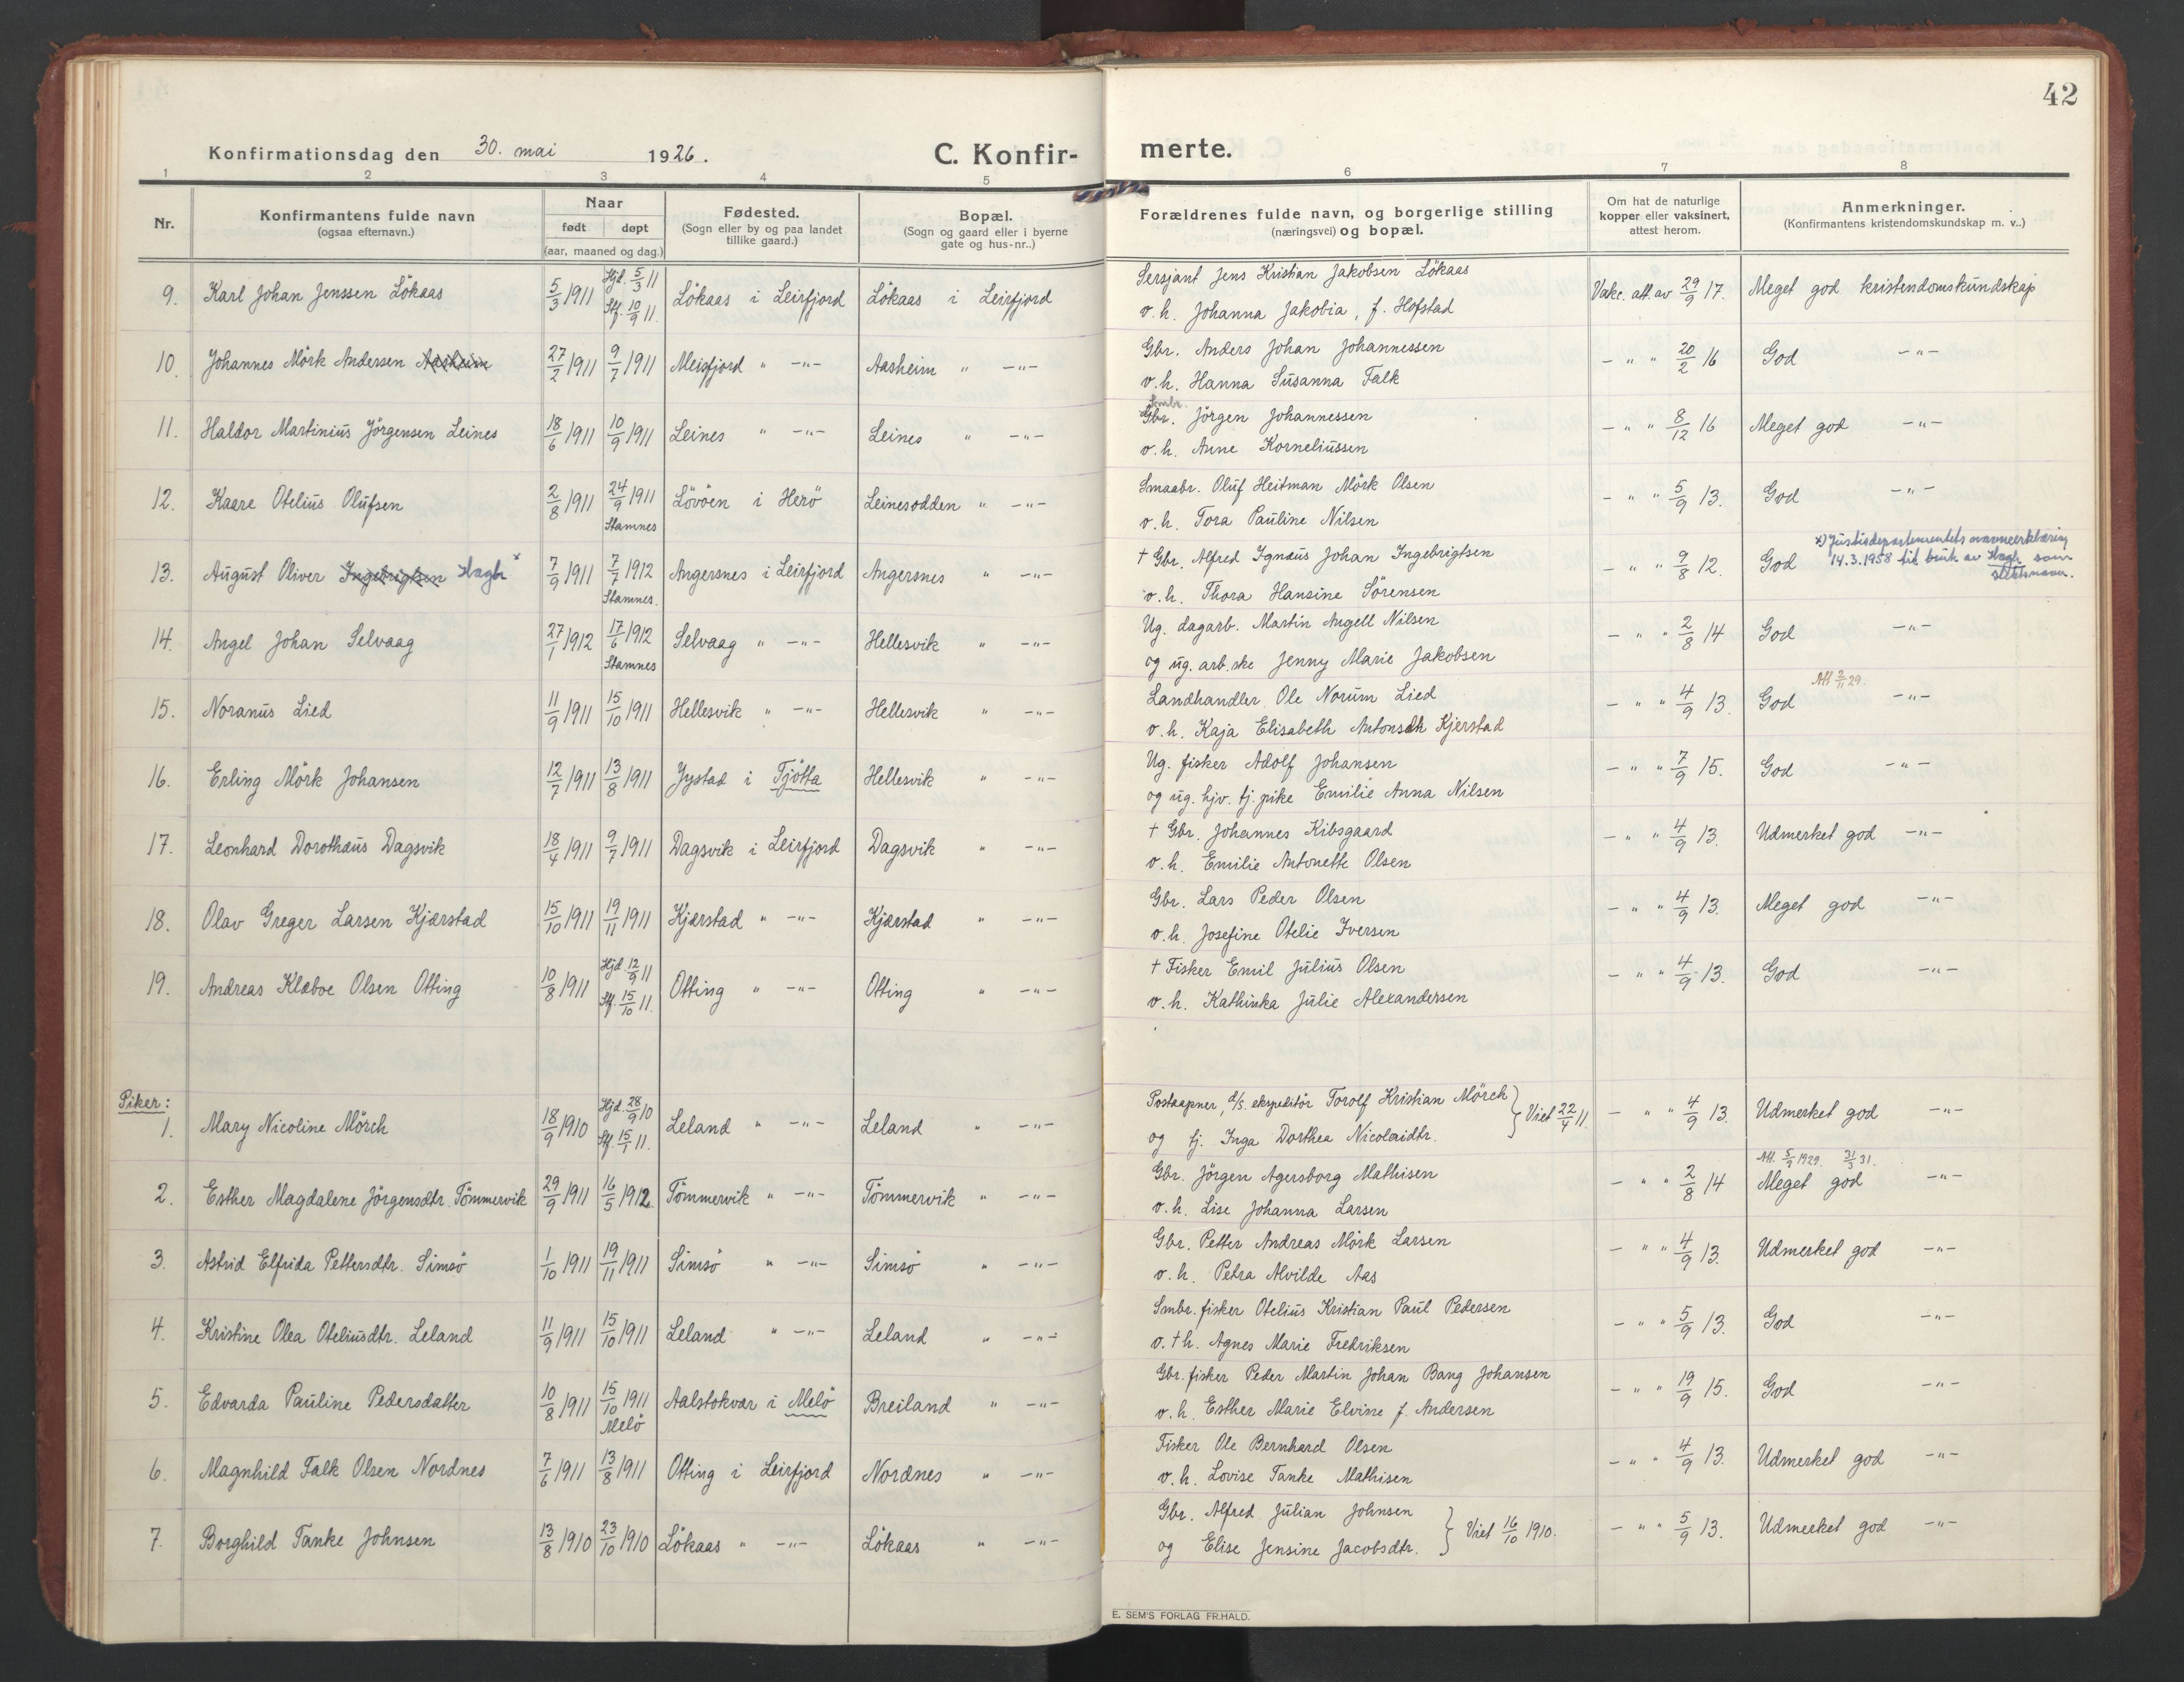 42
Konfirmationsdag den 30. mai 1926. C. Konfir- merte.
1 2 3 4 5 6 7 8
Nr. Konfirmantens fulde navn (ogsaa efternavn.) Naar født døpt (aar, maaned og dag.) Fødested. (Sogn eller by og paa landet tillike gaard.) Bopæl. (Sogn og gaard eller i byerne gate og hus-nr..) Forældrenes fulde navn, og borgerlige stilling (næringsvei) og bopæl. Om hat de naturlige kopper eller vaksinert, attest herom. Anmerkninger. (Konfirmantens kristendomskundskap m. v..)
9. Karl Johan Jenssen Lökaas 5/3 1911 Hjd. 5/3 11 Stf. 10/9 11. Lökaas i Leirfjord Lökaas i Leirfjord Sersjant Jens Kristian Jakobsen Lökaas Vakc. att. av 29/9 17. Meget god kristendomskundskap
o.h. Johanna Jakobia, f. Hofstad
10. Johannes Mörk Andersen Aasheim 27/2 1911 9/7 1911 Meisfjord " -"- Aasheim " -"- Gbr. Anders Johan Johannessen - " " 20/2 16 God -"-
o.h. Hanna Susanna Falk
Smbr.
11. Haldor Martinius Jörgensen Leines 18/6 1911 10/9 1911 Leines " -"- Leines " -"- Gbr. Jörgen Johannessen - " " 8/12 16 Meget god -"-
o.h. Anne Korneliussen
12. Kaare Otelius Olufsen 2/8 1911 24/9 1911 Stamnes Lövöen i Herö Leinesodden " -"- Smaabr. Oluf Heitman Mörk Olsen - " " 5/9 13. God -"-
o.h. Tora Pauline Nilsen
13. August Oliver Ingebrigtsen Hagbr x 7/9 1911 7/7 1912 Stamnes. Angersnes i Leirfjord Angersnes " -"- † Gbr. Alfred Ignæus Johan Ingebrigtsen - " " 9/8 12. God x) Justisdepartementets navneerklæring 14.3.1958 til bruk av Hagbr som slektsnavn.
o.h. Thora Hansine Sörensen
14. Angel Johan Selvaag 27/1 1912 17/6 1912 Stamnes Selvaag " -"- Hellesvik " -"- Ug. dagarb. Martin Angell Nilsen - " " 2/8 14 God -"-
og ug. arb.ske Jenny Marie Jakobsen
15. Noranus Lied 11/9 1911 15/10 1911 Hellesvik " -"- Hellesvik " -"- Landhandler Ole Norum Lied - " " 4/9 13. God Att 2/11 29. -"-
o.h. Kaja Elisabeth Antonsdtr Kjerstad
16. Erling Mörk Johansen 12/7 1911 13/8 1911 Jystad i Tjötta Hellesvik " -"- Ug. fisker Adolf Johansen - " " 7/9 15. God -"-
og ug. hjv. tj. pike Emilie Anna Nilsen
17. Leonhard Dorothæus Dagsvik 18/4 1911 9/7 1911 Dagsvik i Leirfjord Dagsvik " -"- † Gbr. Johannes Kibsgaard - " " 4/9 13. Udmerket god -"-
o.h. Emilie Antonette Olsen
18. Olav Greger Larsen Kjærstad 15/10 1911 19/11 1911 Kjærstad " -"- Kjærstad " -"- Gbr. Lars Peder Olsen - " " 4/9 13. Meget god -"-
o.h. Josefine Otelie Iversen
19. Andreas Klæboe Olsen Otting 10/8 1911 Hjd. 12/9 11 Stf. 15/10 11. Otting " -"- Otting " -"- † Fisker Emil Julius Olsen - " " 4/9 13. God -"-
o.h. Kathinka Julie Alexandersen
Piker:
1. Mary Nicoline Mörch 18/9 1910 Hjd. 28/9 10 Stf. 15/1 11. Leland " -"- Leland " -"- Postaapner, d/s. ekspeditör Torolf Kristian Mörch } Viet 22/4 11. - " " 4/9 13. Udmerket god -"-
og tj. Inga Dorthea Nicolaidtr.
Att. 5/9 1929. 31/3 31.
2. Esther Magdalene Jörgensdtr. Tömmervik 29/9 1911 16/5 1912. Tömmervik " -"- Tömmervik " -"- Gbr. Jörgen Agersborg Mathisen - " " 2/8 14 Meget god -"-
o.h. Lise Johanna Larsen
3. Astrid Elfrida Pettersdtr. Simsö 1/10 1911 19/11 1911 Simsö " -"- Simsö " -"- Gbr. Petter Andreas Mörk Larsen - " " 4/9 13. Udmerket god -"-
o.h. Petra Alvilde Aas
4. Kristine Olea Oteliusdtr. Leland 11/9 1911 15/10 1911 Leland " -"- Leland " -"- Smbr. fisker Otelius Kristian Paul Pedersen - " " 5/9 13. God -"-
o. † h. Agnes Marie Fredriksen
5. Edvarda Pauline Pedersdatter 10/8 1911 15/10 1911 Melö Aalstokvær i Melö Breiland " -"- Gbr. fisker Peder Martin Johan Bang Johansen - " " 19/9 15. God -"-
o.h. Esther Marie Elvine f. Andersen
6. Magnhild Falk Olsen Nordnes 7/6 1911 13/8 1911 Otting i Leirfjord Nordnes " -"- Fisker Ole Bernhard Olsen - " " 4/9 13. Udmerket god -"-
o.h. Lovise Tanke Mathisen
7. Borghild Tanke Johnsen 13/8 1910 23/10 1910 Lökaas " -"- Lökaas " -"- Gbr. Alfred Julian Johnsen } Viet 16/10 1910. - " " 5/9 13. Udmerket god -"-
og Elise Jensine Jacobsdtr.
E. SEM'S FORLAG FR.HALD.